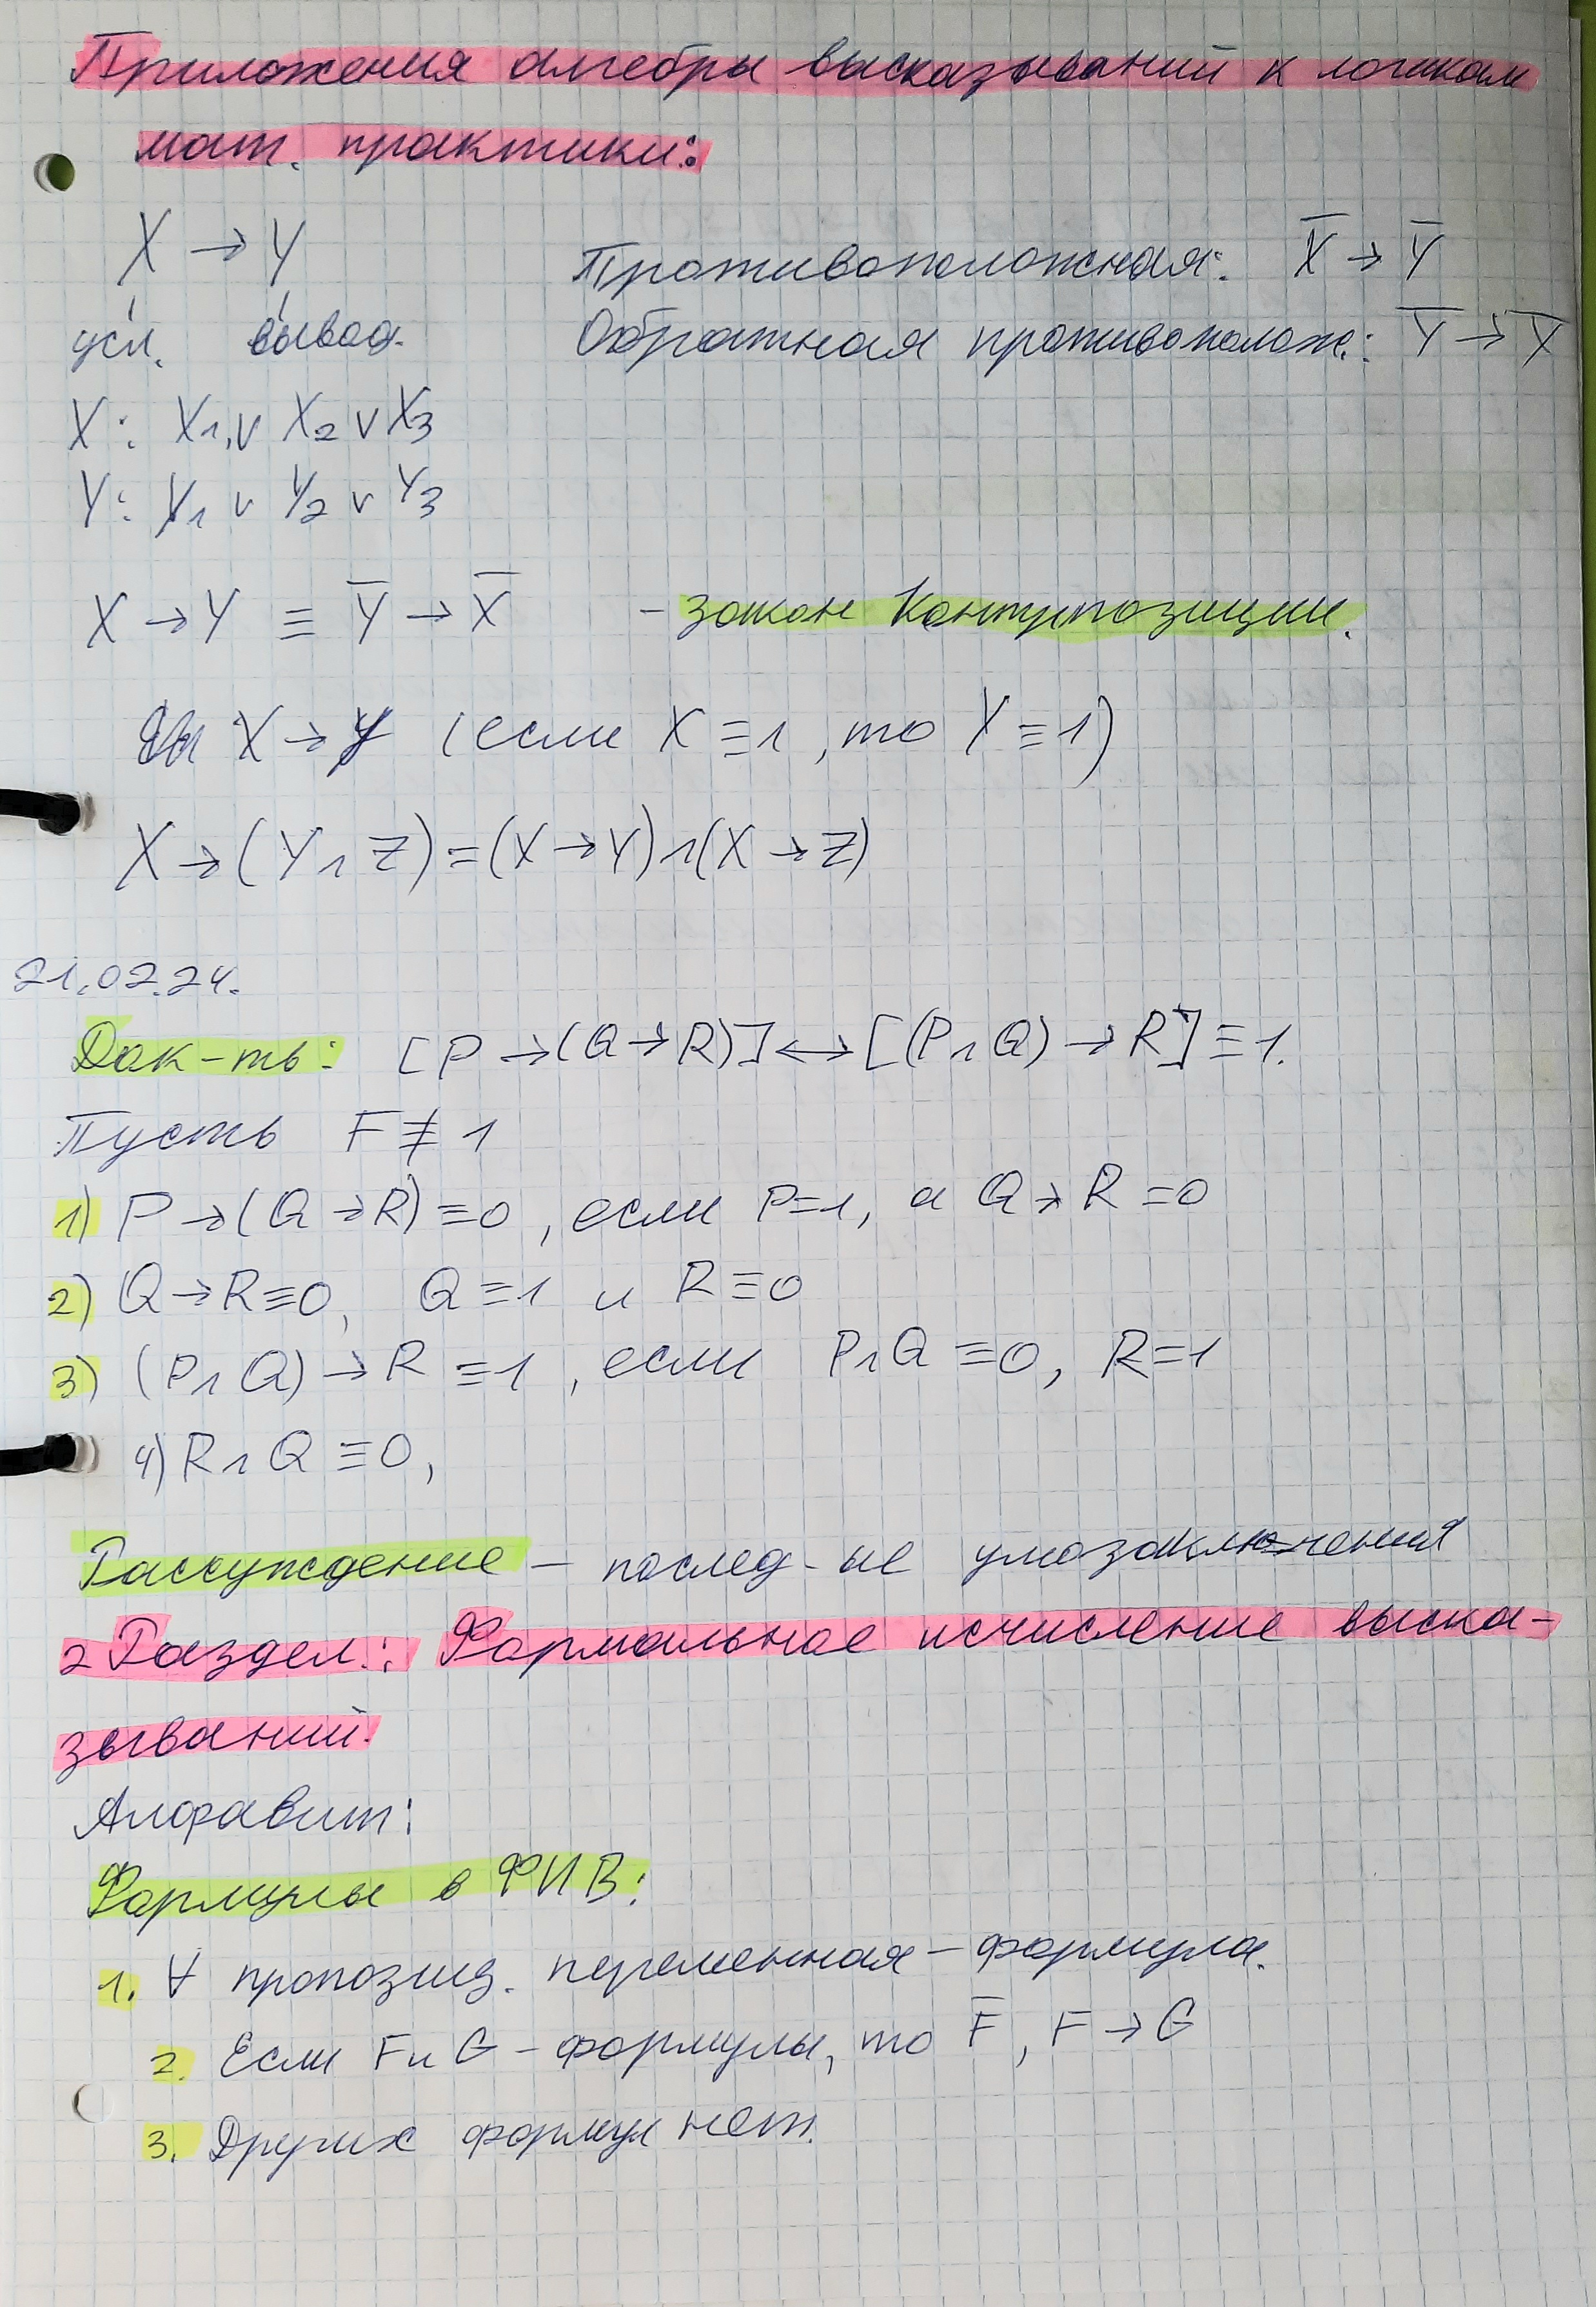 Приложения алгебры высказываний к логикам
мат. практики:
X → Y Противоположная: X̅ → Y̅
усл. вывод. Обратная противополож.: Y̅ → X̅
X: X₁ ∨ X₂ ∨ X₃
Y: Y₁ ∨ Y₂ ∨ Y₃
X → Y ≡ Y̅ → X̅ – закон Контрпозиции.
X → Y (если X ≡ 1, то Y ≡ 1)
X → (Y ∧ Z) = (X → Y) ∧ (X → Z)
21.02.24.
Док-ть: [P → (Q → R)] ↔ [(P ∧ Q) → R] ≡ 1.
Пусть F ≢ 1
1) P → (Q → R) ≡ 0, если P=1, а Q → R = 0
2) Q → R ≡ 0, Q ≡ 1 и R ≡ 0
3) (P ∧ Q) → R ≡ 1, если P ∧ Q ≡ 0, R = 1
4) R ∧ Q ≡ 0,
Рассуждение – послед-ые умозаключения
2 Раздел: Формальное исчисление выска-
зываний.
Алфавит:
Формулы в ФИВ:
1. ∀ пропозиц. переменная – формула.
2. Если F и G – формулы, то F̅, F → G
3. Других формул нет.